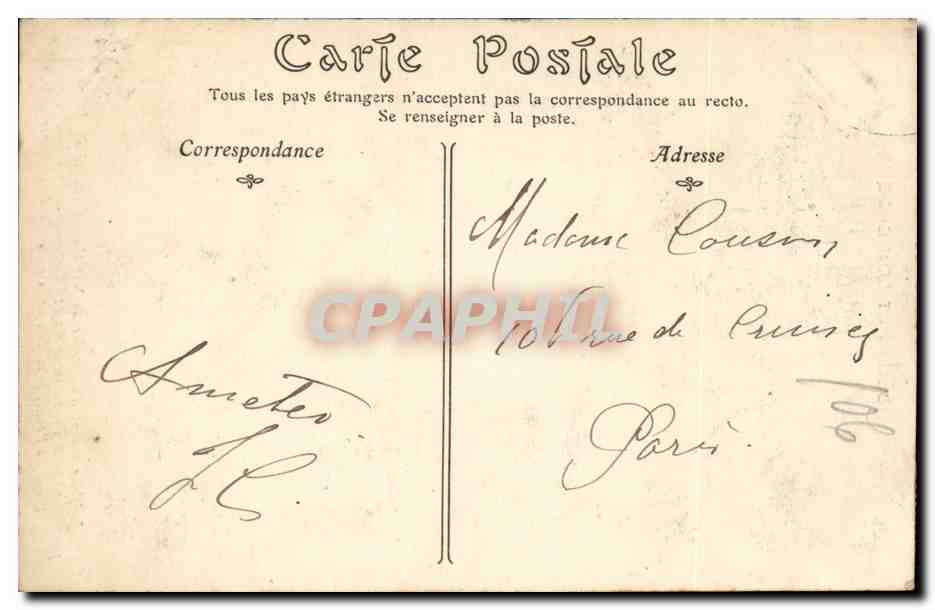 Carte Postale
Tous les pays étrangers n'acceptent pas la correspondance au recto.
Se renseigner à la poste.
Correspondance
Adresse
Madame
rue de
Paris.
J C.
CPAPHIL